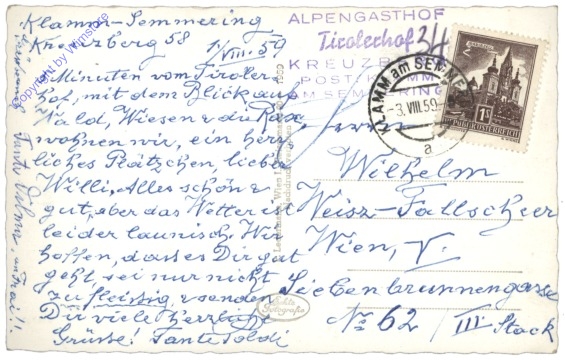 Klamm-Semmering
Kreuzberg 58 1/VIII. 59
Minuten vom Tiroler
hof, mit dem Blick auf
Wald, Wiesen u. die Rax,
wohnen wir, ein herr
liches Plätzchen, lieber
Willi, Alles schön u
gut, aber das Wetter ist
leider launisch. Wir
hoffen, dass es Dir gut
geht, sei nur nicht
zu fleissig u senden
Dir viele herzliche
Grüsse! Tante Poldi
ALPENGASTHOF
Tirolerhof
KREUZBERG
POST KLAMM
AM SEMMERING
KLAMM am SEMMERING
-3. VIII. 59-
a
1S
REPUBLIK ÖSTERREICH
Herrn
Wilhelm
Weisz-Fallscheer
Wien, V.
Siebenbrunnengasse
No 62 / III Stock
Echte
Fotografie
Copyright by Wimstore